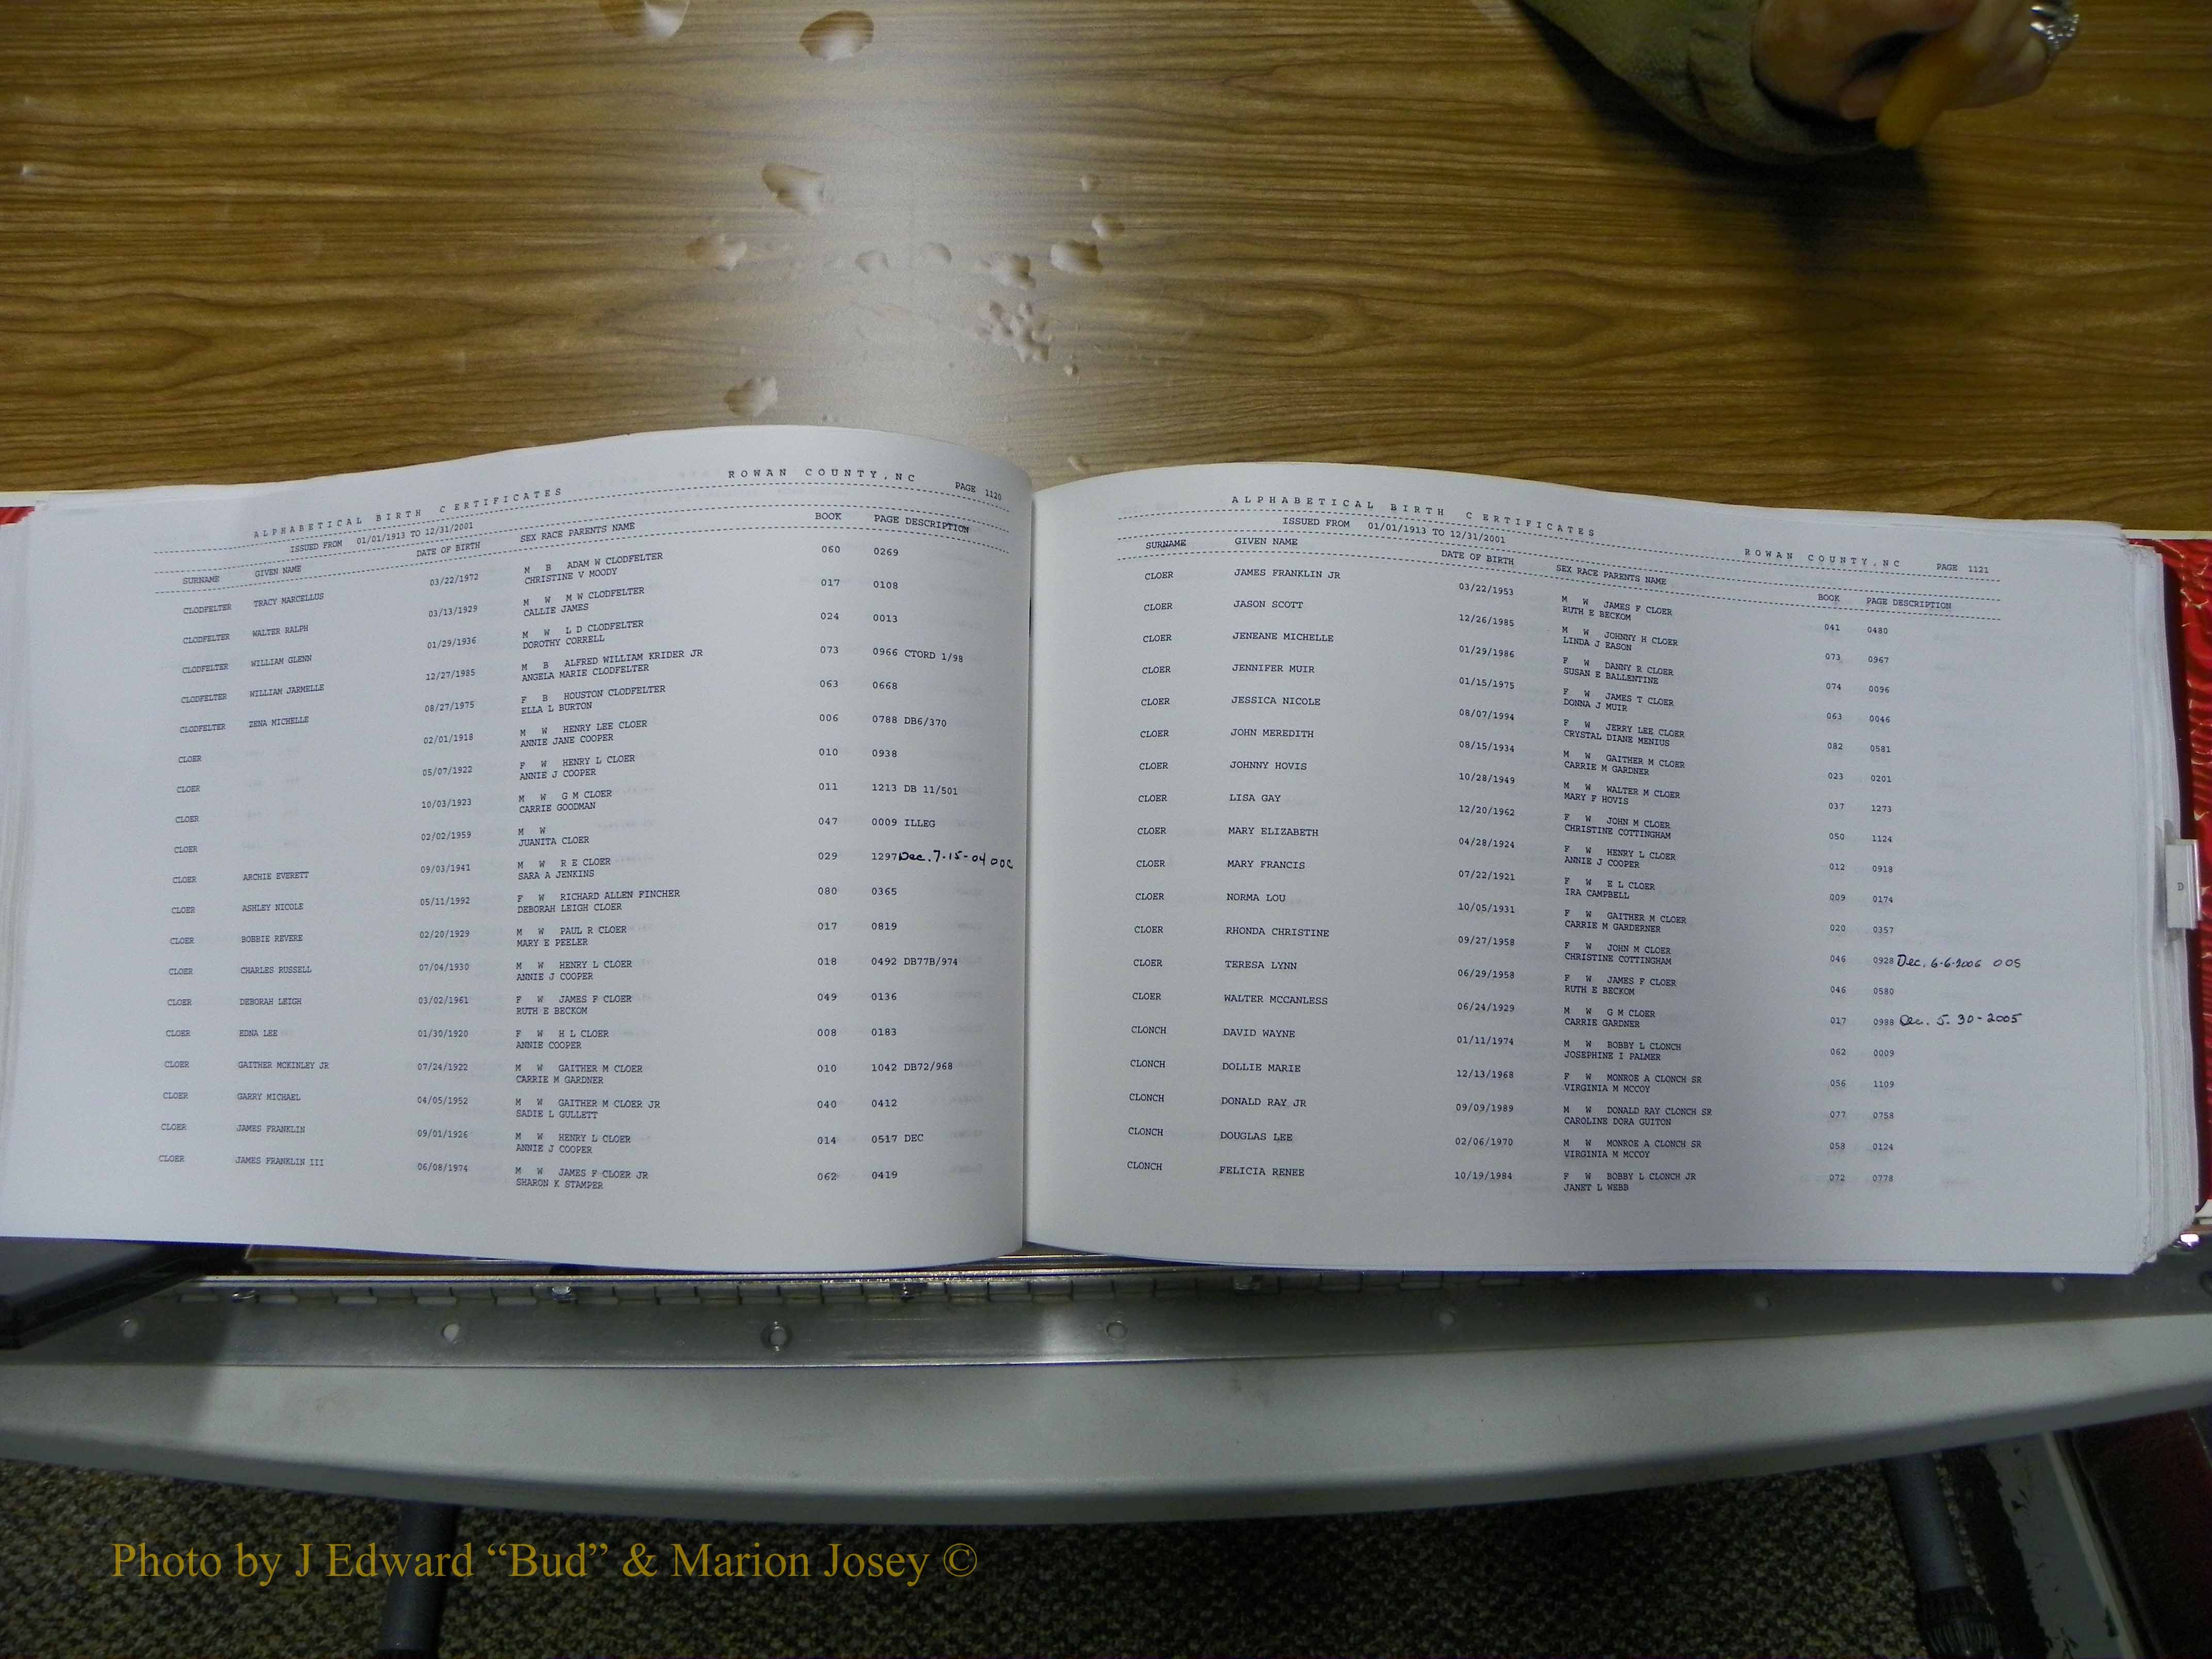 ALPHABETICAL BIRTH CERTIFICATES ROWAN COUNTY,NC PAGE 1120
ISSUED FROM 01/01/1913 TO 12/31/2001
SURNAME GIVEN NAME DATE OF BIRTH SEX RACE PARENTS NAME BOOK PAGE DESCRIPTION
CLODFELTER TRACY MARCELLUS 03/22/1972 M B ADAM W CLODFELTER 060 0269
CHRISTINE V MOODY
CLODFELTER WALTER RALPH 03/13/1929 M W M W CLODFELTER 017 0108
CALLIE JAMES
CLODFELTER WILLIAM GLENN 01/29/1936 M W L D CLODFELTER 024 0013
DOROTHY CORRELL
CLODFELTER WILLIAM JARMELLE 12/27/1985 M B ALFRED WILLIAM KRIDER JR 073 0966 CTORD 1/98
ANGELA MARIE CLODFELTER
CLODFELTER ZENA MICHELLE 08/27/1975 F B HOUSTON CLODFELTER 063 0668
ELLA L BURTON
CLOER 02/01/1918 M W HENRY LEE CLOER 006 0788 DB6/370
ANNIE JANE COOPER
CLOER 05/07/1922 F W HENRY L CLOER 010 0938
ANNIE J COOPER
CLOER 10/03/1923 M W G M CLOER 011 1213 DB 11/501
CARRIE GOODMAN
CLOER 02/02/1959 M W 047 0009 ILLEG
JUANITA CLOER
CLOER ARCHIE EVERETT 09/03/1941 M W R E CLOER 029 1297 Dec. 7-15-04 OOC
SARA A JENKINS
CLOER ASHLEY NICOLE 05/11/1992 F W RICHARD ALLEN FINCHER 080 0365
DEBORAH LEIGH CLOER
CLOER BOBBIE REVERE 02/20/1929 M W PAUL R CLOER 017 0819
MARY E PEELER
CLOER CHARLES RUSSELL 07/04/1930 M W HENRY L CLOER 018 0492 DB77B/974
ANNIE J COOPER
CLOER DEBORAH LEIGH 03/02/1961 F W JAMES F CLOER 049 0136
RUTH E BECKOM
CLOER EDNA LEE 01/30/1920 F W H L CLOER 008 0183
ANNIE COOPER
CLOER GAITHER MCKINLEY JR 07/24/1922 M W GAITHER M CLOER 010 1042 DB72/968
CARRIE M GARDNER
CLOER GARRY MICHAEL 04/05/1952 M W GAITHER M CLOER JR 040 0412
SADIE L GULLETT
CLOER JAMES FRANKLIN 09/01/1926 M W HENRY L CLOER 014 0517 DEC
ANNIE J COOPER
CLOER JAMES FRANKLIN III 06/08/1974 M W JAMES F CLOER JR 062 0419
SHARON K STAMPER
ALPHABETICAL BIRTH CERTIFICATES ROWAN COUNTY,NC PAGE 1121
ISSUED FROM 01/01/1913 TO 12/31/2001
SURNAME GIVEN NAME DATE OF BIRTH SEX RACE PARENTS NAME BOOK PAGE DESCRIPTION
CLOER JAMES FRANKLIN JR 03/22/1953 M W JAMES F CLOER 041 0480
RUTH E BECKOM
CLOER JASON SCOTT 12/26/1985 M W JOHNNY H CLOER 073 0967
LINDA J EASON
CLOER JENEANE MICHELLE 01/29/1986 F W DANNY R CLOER 074 0096
SUSAN E BALLENTINE
CLOER JENNIFER MUIR 01/15/1975 F W JAMES T CLOER 063 0046
DONNA J MUIR
CLOER JESSICA NICOLE 08/07/1994 F W JERRY LEE CLOER 082 0581
CRYSTAL DIANE MENIUS
CLOER JOHN MEREDITH 08/15/1934 M W GAITHER M CLOER 023 0201
CARRIE M GARDNER
CLOER JOHNNY HOVIS 10/28/1949 M W WALTER M CLOER 037 1273
MARY F HOVIS
CLOER LISA GAY 12/20/1962 F W JOHN M CLOER 050 1124
CHRISTINE COTTINGHAM
CLOER MARY ELIZABETH 04/28/1924 F W HENRY L CLOER 012 0918
ANNIE J COOPER
CLOER MARY FRANCIS 07/22/1921 F W E L CLOER 009 0174
IRA CAMPBELL
CLOER NORMA LOU 10/05/1931 F W GAITHER M CLOER 020 0357
CARRIE M GARDERNER
CLOER RHONDA CHRISTINE 09/27/1958 F W JOHN M CLOER 046 0928 Dec. 6-6-2006 OOS
CHRISTINE COTTINGHAM
CLOER TERESA LYNN 06/29/1958 F W JAMES F CLOER 046 0580
RUTH E BECKOM
CLOER WALTER MCCANLESS 06/24/1929 M W G M CLOER 017 0988 Dec. 5-30-2005
CARRIE GARDNER
CLONCH DAVID WAYNE 01/11/1974 M W BOBBY L CLONCH 062 0009
JOSEPHINE I PALMER
CLONCH DOLLIE MARIE 12/13/1968 F W MONROE A CLONCH SR 056 1109
VIRGINIA M MCCOY
CLONCH DONALD RAY JR 09/09/1989 M W DONALD RAY CLONCH SR 077 0758
CAROLINE DORA GUITON
CLONCH DOUGLAS LEE 02/06/1970 M W MONROE A CLONCH SR 058 0124
VIRGINIA M MCCOY
CLONCH FELICIA RENEE 10/19/1984 F W BOBBY L CLONCH JR 072 0778
JANET L WEBB
D
Photo by J Edward “Bud” & Marion Josey ©